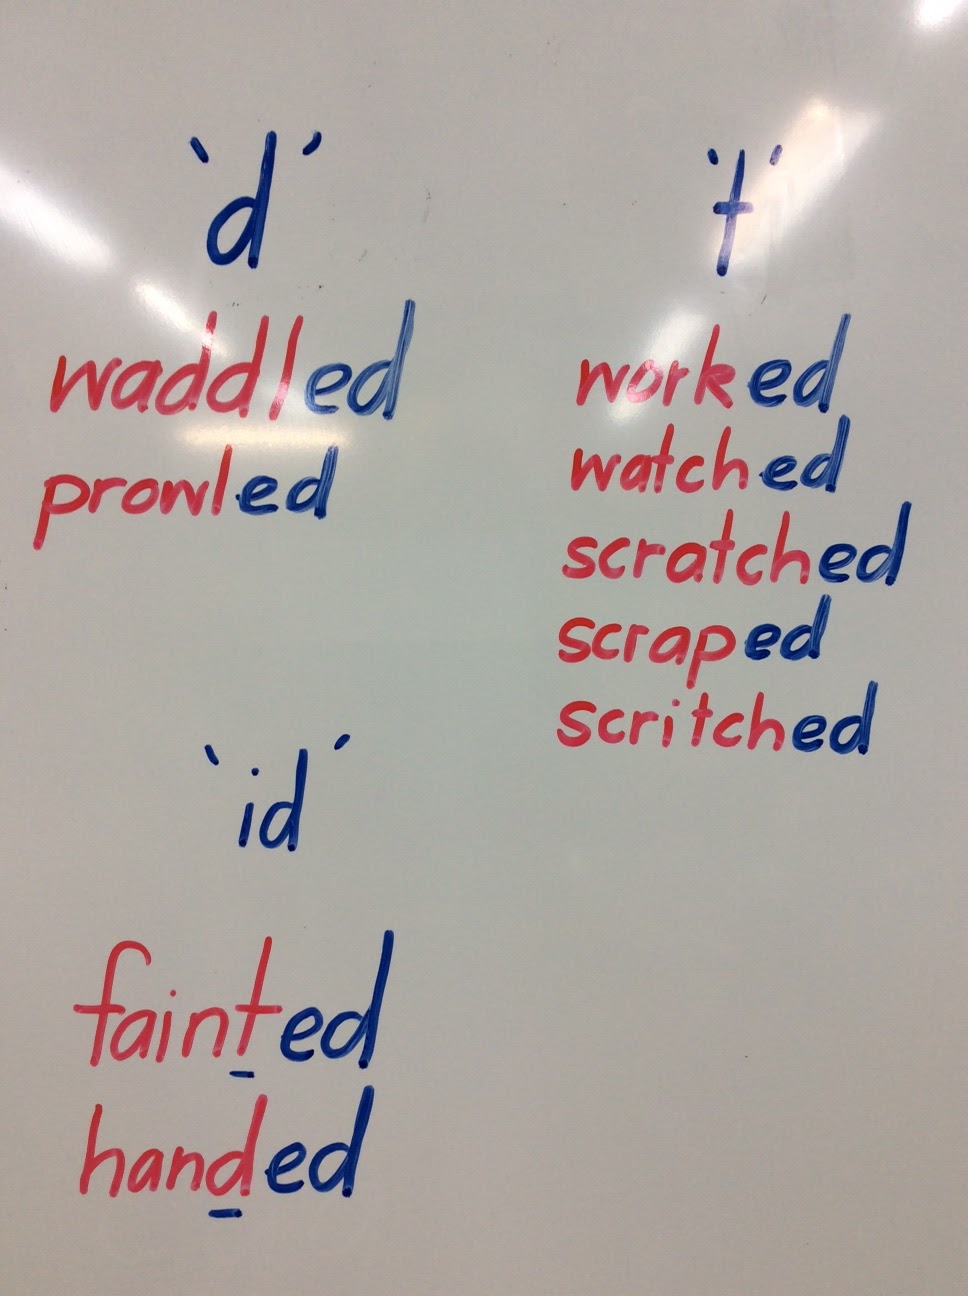 'd'
waddled
prowled
't'
worked
watched
scratched
scraped
scritched
'id'
fainted
handed